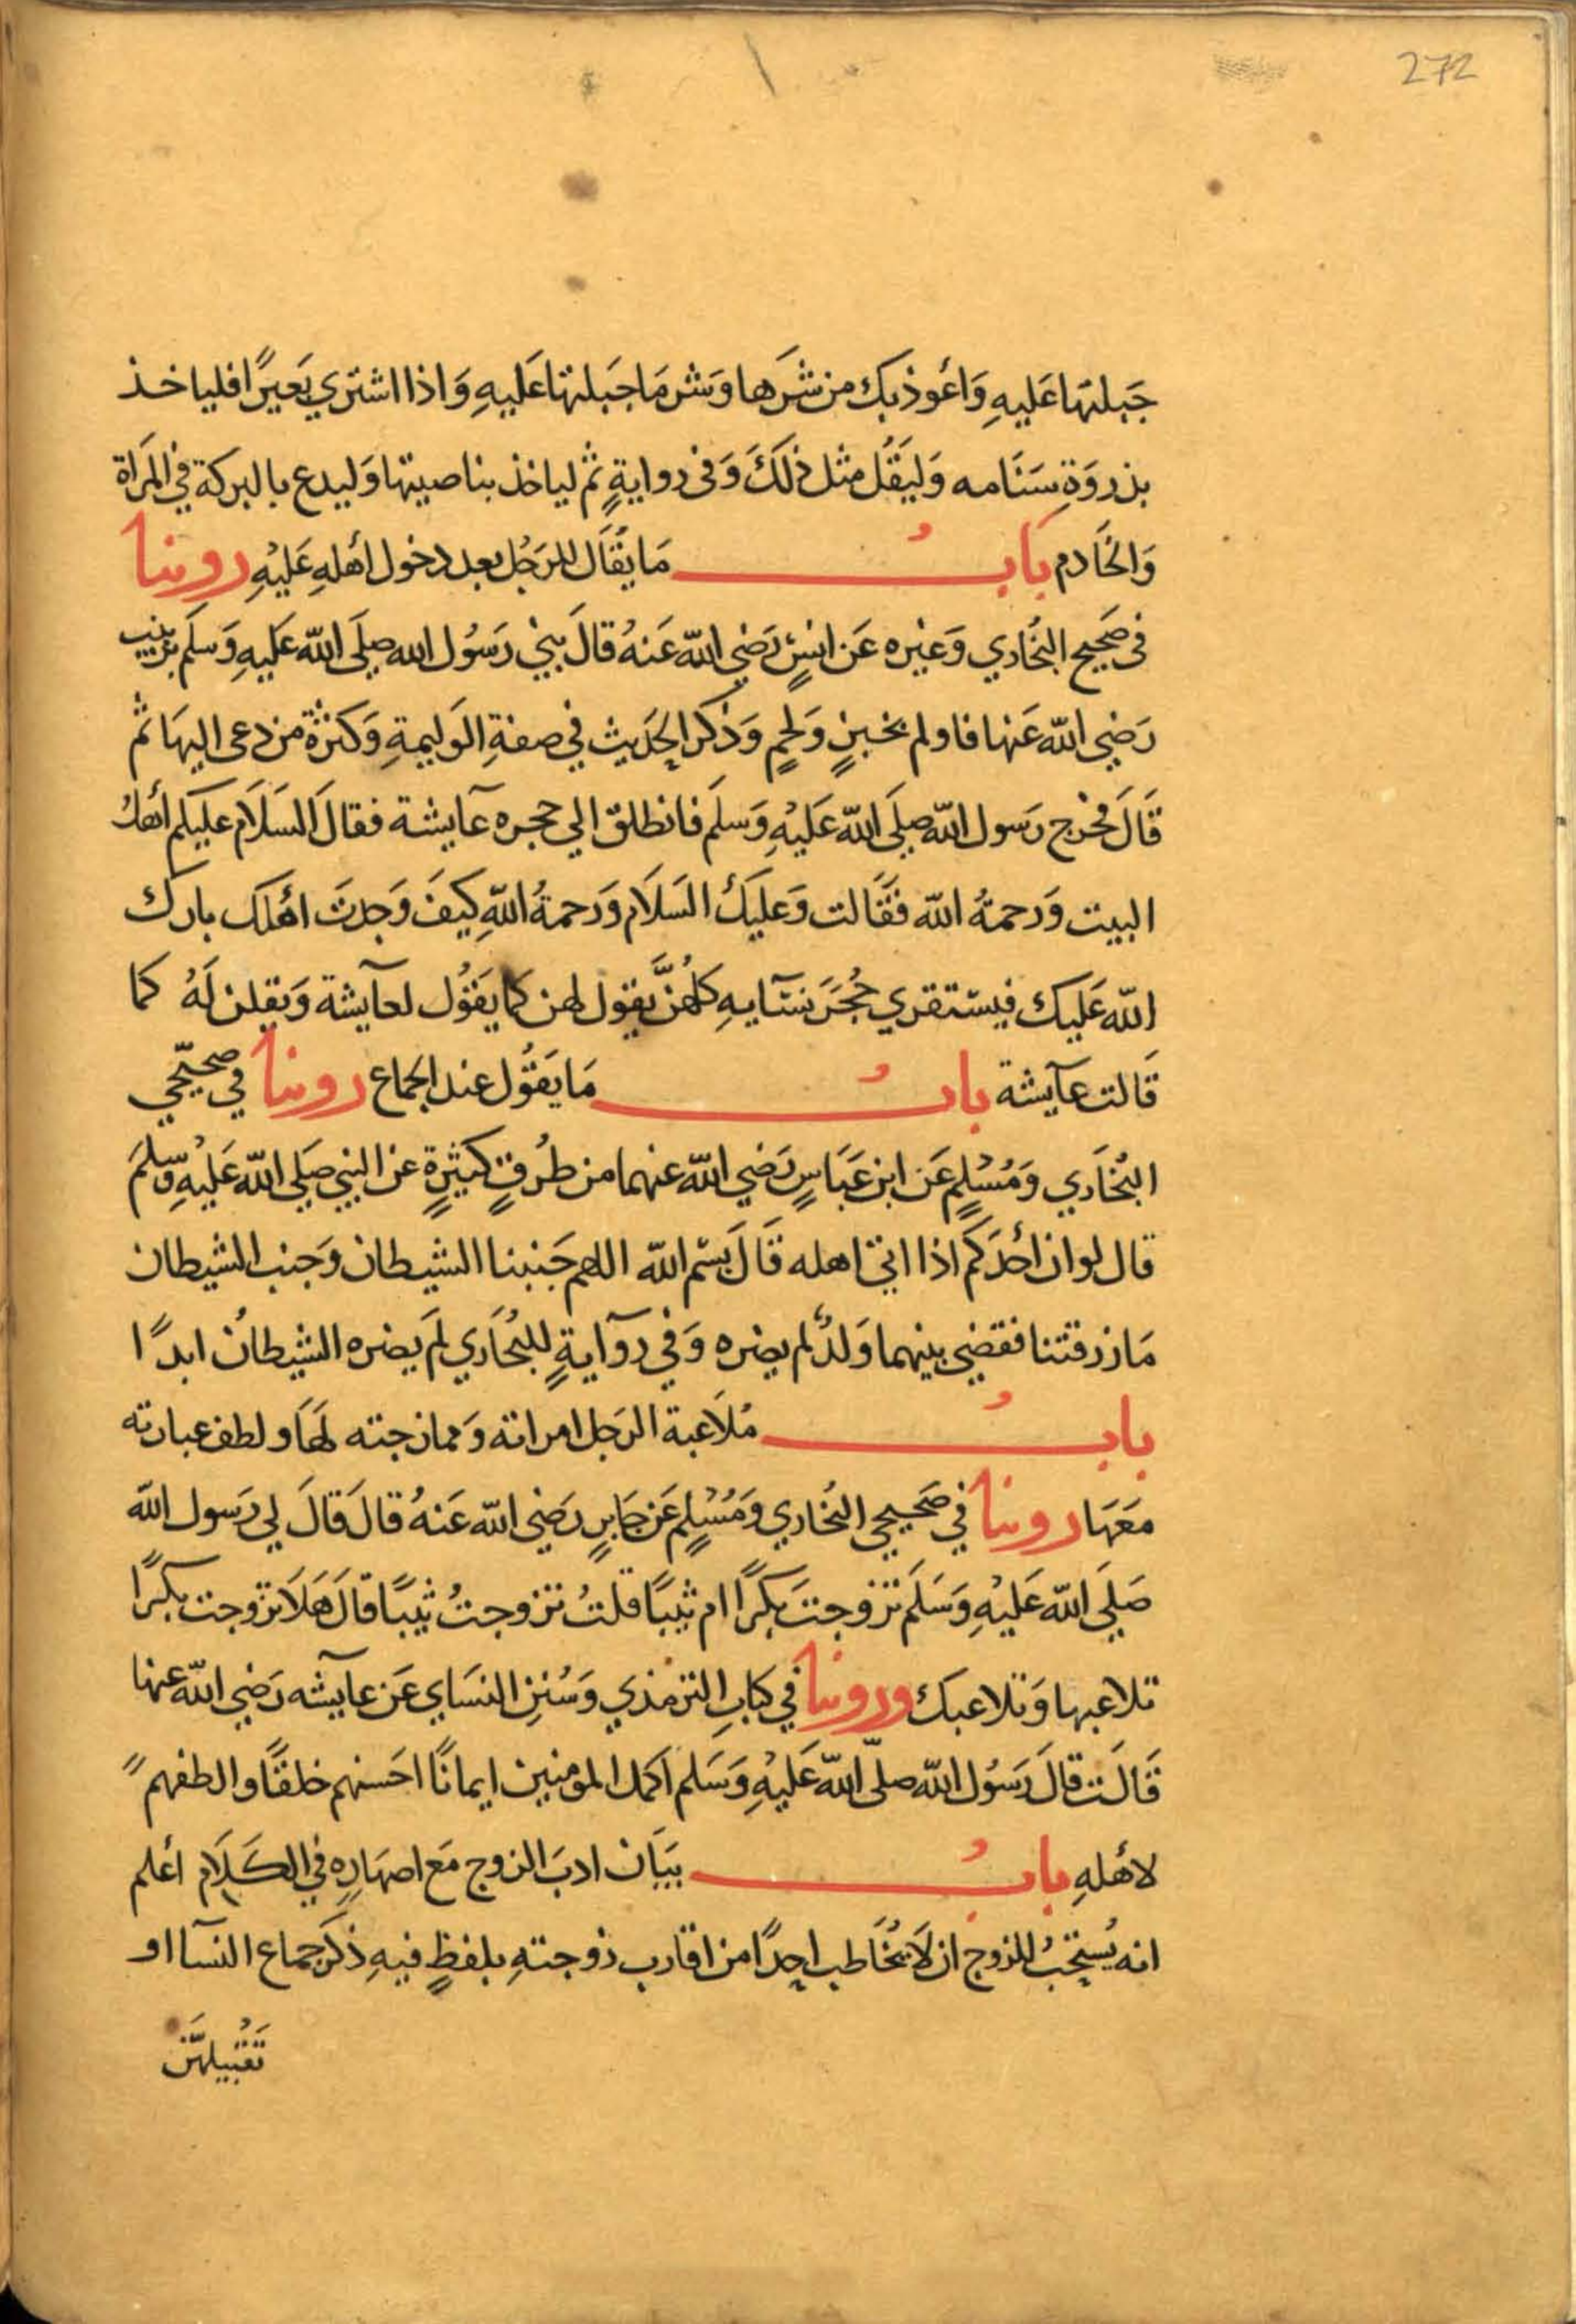 272
جَبلتَها عَليهِ وَأعُوذ بكَ من شرَها وَشر مَا جَبلتها عَليهِ وَاذا اشتري بَعيرًا فلياخذ
بذروَةِ سَنَامه وَليَقُل مثل ذلكَ وَفى روايةٍ ثم لياخذ بناصيتها وَليدع بالبركة في المَراة
وَالخَادم بابُ مَا يقَال للرَجُل بعد دخول أهلهِ عَليْهِ روينا
فى صَحيح البُخاري وَغيره عَن انسٍ رَضي الله عَنهُ قالَ بني رَسُول الله صلَى الله عَليهِ وَسلم بزينب
رَضي الله عَنها فاولم بخبزٍ وَلحمٍ وَذكر الحَديث في صفةِ الوَليمةِ وَكثرة من دعى اليهَا ثم
قَالَ فخرج رَسول الله صلَى الله عَليْهِ وَسلمَ فانطلق الي حجره عَآيشة فقالَ السَلَام عليكم أهلُ
البيت وَرحمةُ الله فقَالت وَعليَكَ السَلَام وَرحمةُ اللهِ كيفَ وَجدتَ اهلك بارك
الله عَليك فيستقري حُجُرَ نسَآيهِ كلهُنَّ يقول لهن كما يقوُل لعآيشة وَيقلن لَهُ كما
قَالت عآيشة بابُ مَا يَقوُل عند الجماع روينا في صحيحَي
البُخَاري وَمُسْلمٍ عَن ابن عَبَاسٍ رَضي الله عنهما من طُرقٍ كثيَرةٍ عن النبي صَلي الله عَليْهِ وسّلمَ
قال لو ان أحدَكم اذا اتى اهله قَالَ بسْم الله اللهم جَنبنا الشيطان وَجنب الشيطان
مَا رزقتنا فقضي بينهما وَلدٌ لم يضره وَفي روآيةٍ للبُخَاري لمَ يضره الشيطانُ ابدًا
بابُ مُلاَعبة الرَجل امراته وَممازجته لهَا ولطف عبارته
معَهَا روينا في صَحيحي البُخاري وَمُسْلمٍ عَن جَابرٍ رَضي الله عَنهُ قالَ قالَ لي رَسول الله
صَلَي الله عَليْهِ وَسَلَم تزوجتَ بكرًا ام ثيبًا قلتُ تزوجتُ ثيبًا قالَ هَلَا تزوجت بكرًا
تلاعبها وَتلاعبك وروينا في كتابِ الترمذي وَسُننِ النسَاي عَن عآيشه رَضي الله عنها
قَالَت قالَ رَسُول الله صلّى الله عَليْهِ وَسَلم اكمل المومنين ايمانًا احسَنهم خلقًا والطفهم
لأهلهِ بابُ بيَان ادبَ الزوج مَع اصهَارهِ في الكَلَام أعلم
انه يُستحَبُ للزوج ان لَا يخَاطب احدًا من اقارب زوجتهِ بلفظٍ فيهِ ذكر جماع النسآ او
تَقْبيلهنَّ